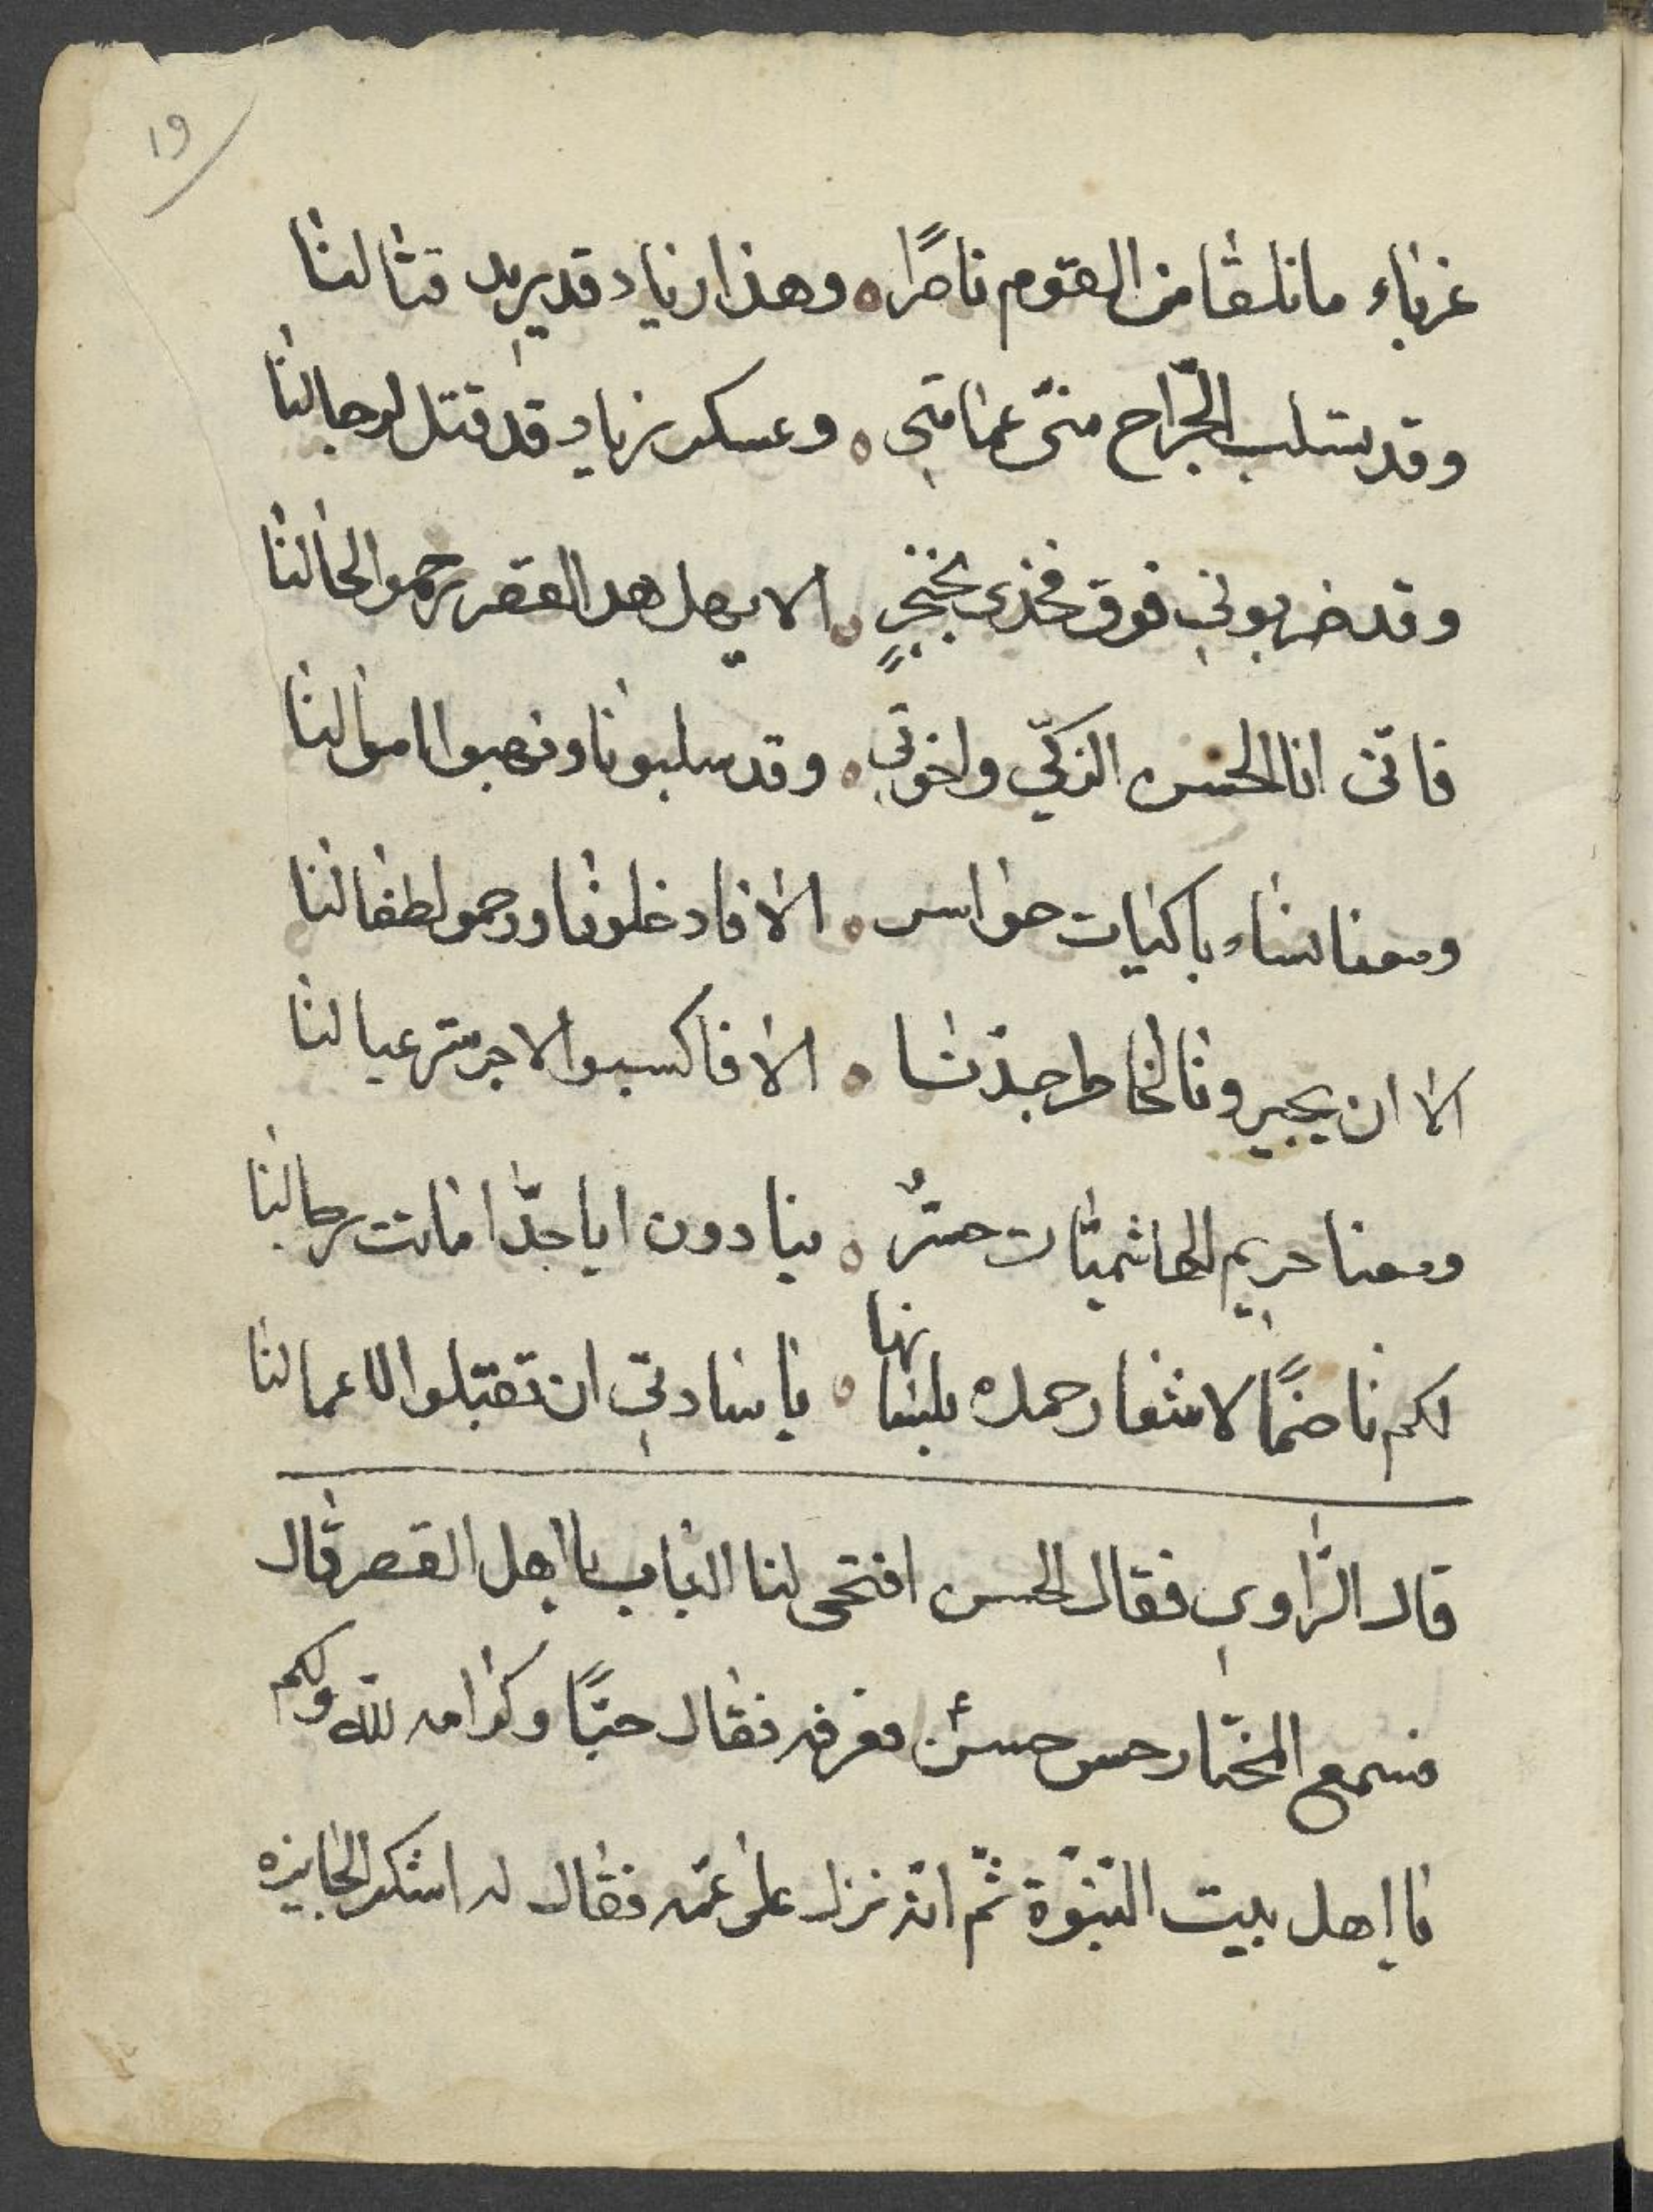 19
غرباء ما نلقا من القوم ناصرًا ه وهذا زياد قد يريد قتالنا
وقد سلب الجرّاح منّي عمامتي ه وعسكر زياد قد قتل لرجالنا
وقد ضربوني فوق فخذي بخنجرٍ ه الا يهل هدا القصر رحموا لحالنا
فانّني انا الحسن الزكّي واخوتي ه وقد سلبونا ونهبوا اموالنا
ومعنا نساء باكيات حواسر ه الا فادخلونا ورحموا لطفالنا
الا ان يجيرونا لخاطر جدّنا ه الا فاكسبوا الاجر سترعيالنا
ومعنا حريم الهاشميّات حسّرٌ ه ينادون ايا جدّا ماتت رجالنا
لكم ناضمًا لاشعار حمده بلينها ه يا سادتي ان تقبلوا لاعمالنا
قال الرّاوي فقال الحسن افتحى لنا الباب يا اهل القصر قال
فسمع المختار حس حسن فعرفه فقال حبًّا وكرامه لله ولكم
يا اهل بيت النّبوّة ثم انّه نزل على عمّه فقال له اشكر الجايزه